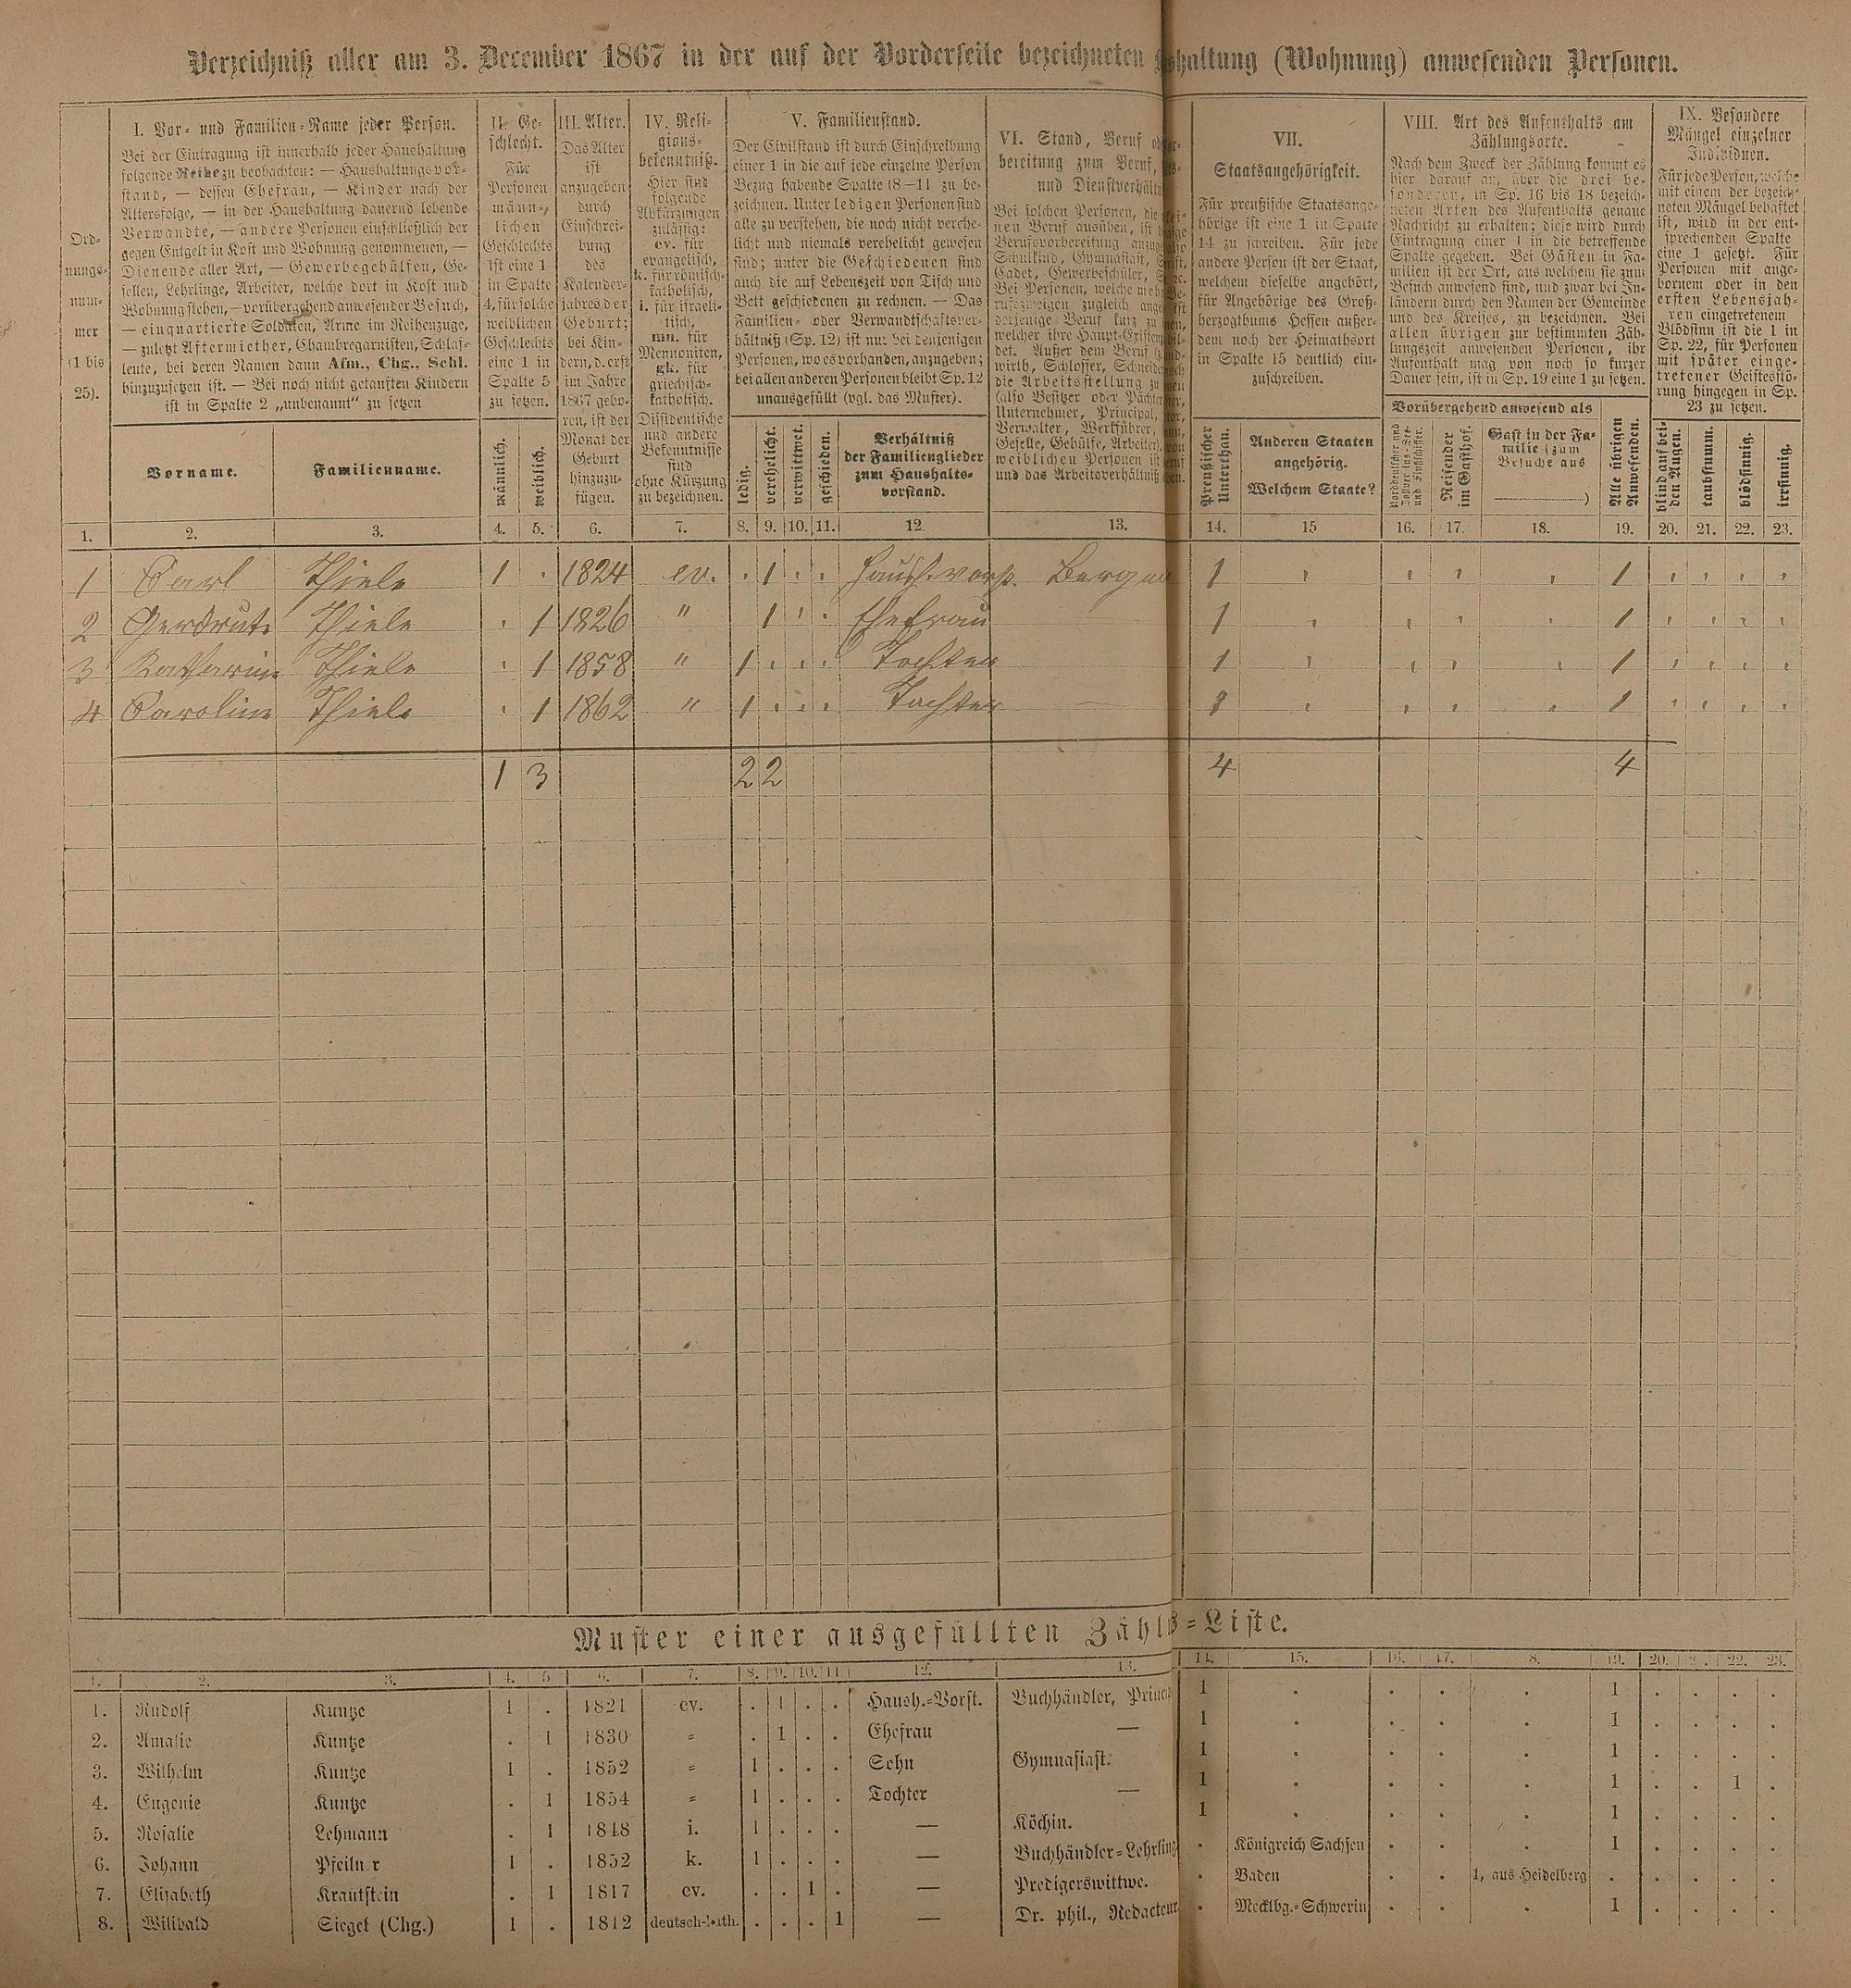 Verzeichniß aller am 3. December 1867 in der auf der Vorderseite bezeichneten haltung (Wohnung) anwesenden Personen.
Ord-
nungs-
num-
mer
(1 bis
25).
I. Vor- und Familien-Name jeder Person.
Bei der Eintragung ist innerhalb jeder Haushaltung
folgende Reihe zu beobachten: — Haushaltungsvor-
stand, — dessen Ehefrau, — Kinder nach der
Altersfolge, — in der Haushaltung dauernd lebende
Verwandte, — andere Personen einschließlich der
gegen Entgelt in Kost und Wohnung genommenen, —
Dienende aller Art, — Gewerbsgehülfen, Ge-
sellen, Lehrlinge, Arbeiter, welche dort in Kost und
Wohnung stehen, — vorübergehend anwesender Besuch,
— einquartierte Soldaten, Arme im Reihenzuge,
— zuletzt Aftermiether, Chambregarnisten, Schlaf-
leute, bei deren Namen dann Afm., Chg., Schl.
hinzuzusetzen ist. — Bei noch nicht getauften Kindern
ist in Spalte 2 „unbenannt“ zu setzen
Vorname.
Familienname.
II. Ge-
schlecht.
Für
Personen
männ-
lichen
Geschlechts
ist eine 1
in Spalte
4, für solche
weiblichen
Geschlechts
eine 1 in
Spalte 5
zu setzen.
männlich.
weiblich.
III. Alter.
Das Alter
ist
anzugeben
durch
Einschrei-
bung
des
Kalender-
jahres der
Geburt;
bei Kin-
dern, d. erst
im Jahre
1867 gebo-
ren, ist der
Monat der
Geburt
hinzuzu-
fügen.
IV. Reli-
gions-
bekenntniß.
Hier sind
folgende
Abkürzungen
zulässig:
ev. für
evangelisch,
k. für römisch-
katholisch,
i. für israeli-
tisch,
mn. für
Mennoniten,
gk. für
griechisch-
katholisch.
Dissidentische
und andere
Bekenntnisse
sind
ohne Kürzung
zu bezeichnen.
V. Familienstand.
Der Civilstand ist durch Einschreibung
einer 1 in die auf jede einzelne Person
Bezug habende Spalte (8–11 zu be-
zeichnen. Unter ledigen Personen sind
alle zu verstehen, die noch nicht verehe-
licht und niemals verehelicht gewesen
sind; unter die Geschiedenen sind
auch die auf Lebenszeit von Tisch und
Bett geschiedenen zu rechnen. — Das
Familien- oder Verwandtschaftsver-
hältniß (Sp. 12) ist nur bei denjenigen
Personen, wo es vorhanden, anzugeben;
bei allen anderen Personen bleibt Sp. 12
unausgefüllt (vgl. das Muster).
ledig.
verehelicht.
verwittwet.
geschieden.
Verhältniß
der Familienglieder
zum Haushalts-
vorstand.
VI. Stand, Beruf
bereitung zum Beruf,
und Dienstverhält
Bei solchen Personen, die
nen Beruf ausüben, ist
Berufsvorbereitung
Schulkind, Gymnasiast,
Cadet, Gewerbeschüler,
Bei Personen, welche
rufszweigen zugleich
derjenige Beruf kurz zu
welcher ihre Haupt-
det. Außer dem Beruf
wirth, Schlosser, Schneider
die Arbeitsstellung zu
(also Besitzer oder Pächter
Unternehmer, Principal,
Verwalter, Werkführer,
Geselle, Gehülfe, Arbeiter),
weiblichen Personen ist
und das Arbeitsverhältniß
VII.
Staatsangehörigkeit.
Für preußische Staatsange-
hörige ist eine 1 in Spalte
14 zu schreiben. Für jede
andere Person ist der Staat,
welchem dieselbe angehört,
für Angehörige des Groß-
herzogthums Hessen außer-
dem noch der Heimathsort
in Spalte 15 deutlich ein-
zuschreiben.
Preußischer
Unterthan.
Anderen Staaten
angehörig.
Welchem Staate?
VIII. Art des Aufenthalts am
Zählungsorte.
Nach dem Zweck der Zählung kommt es
hier darauf an, über die drei be-
sonderen, in Sp. 16 bis 18 bezeich-
neten Arten des Aufenthalts genaue
Nachricht zu erhalten; diese wird durch
Eintragung einer 1 in die betreffende
Spalte gegeben. Bei Gästen in Fa-
milien ist der Ort, aus welchem sie zum
Besuch anwesend sind, und zwar bei In-
ländern durch den Namen der Gemeinde
und des Kreises, zu bezeichnen. Bei
allen übrigen zur bestimmten Zäh-
lungszeit anwesenden Personen, ihr
Aufenthalt mag von noch so kurzer
Dauer sein, ist in Sp. 19 eine 1 zu setzen.
Vorübergehend anwesend als
Reisender
im Gasthof.
Gast in der Fa-
milie (zum
Besuche aus
)
Alle übrigen
Anwesenden.
IX. Besondere
Mängel einzelner
Individuen.
Für jede Person, welche
mit einem der bezeich-
neten Mängel behaftet
ist, wird in der ent-
sprechenden Spalte
eine 1 gesetzt. Für
Personen mit ange-
bornem oder in den
ersten Lebensjah-
ren eingetretenem
Blödsinn ist die 1 in
Sp. 22, für Personen
mit später einge-
tretener Geistesstö-
rung hingegen in Sp.
23 zu setzen.
blind auf bei-
den Augen.
taubstumm.
blödsinnig.
irrsinnig.
1. 2. 3. 4. 5. 6. 7. 8. 9. 10. 11. 12. 13. 14. 15 16. 17. 18. 19. 20. 21. 22. 23.
1 Carl Thiele 1 . 1824 ev. . 1 . . Haush.vorst. 1 1
2 Gerdrute Thiele . 1 1826 " 1 . . Ehefrau 1 1
3 Katharine Thiele . 1 1858 " 1 . . . Tochter 1 1
4 Caroline Thiele . 1 1862 " 1 . . . Tochter — 1 1
1 3 2 2 4 4
Muster einer ausgefüllten Zähl-Liste.
1. 2. 3. 4. 5 6. 7. 8. 9. 10. 11 12. 13. 14. 15. 16. 17. 8. 19. 20. 22. 23.
1. Rudolf Kuntze 1 . 1821 ev. . 1 . . Haush.-Vorst. Buchhändler, Princip 1 . . . . 1 . . . .
2. Amalie Kuntze . 1 1830 " . 1 . . Ehefrau — 1 . . . . 1 . . . .
3. Wilhelm Kuntze 1 . 1852 " 1 . . . Sohn Gymnasiast. 1 . . . . 1 . . . .
4. Eugenie Kuntze . 1 1854 " 1 . . . Tochter — 1 . . . . 1 . . 1 .
5. Rosalie Lehmann . 1 1848 i. 1 . . . — Köchin. 1 . . . . 1 . . . .
6. Johann Pfeiln r 1 . 1852 k. 1 . . . — Buchhändler-Lehrling . Königreich Sachsen . . . 1 . . . .
7. Elisabeth Krautstein . 1 1817 ev. . . 1 . — Predigerswittwe. . Baden . . 1, aus Heidelberg . . . . .
8. Willibald Siegel (Chg.) 1 . 1812 deutsch-kath. . . . 1 — Dr. phil., Redacteur . Mecklbg.-Schwerin . . . 1 . . . .